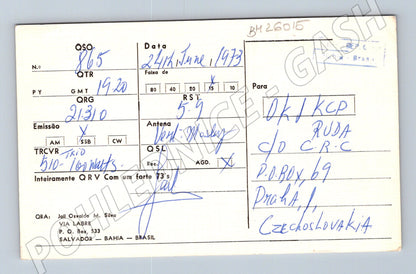 BH26015
QSO
N.: 865
Data
24th, June, 1973
QTR
PY GMT 1920
Faixa de
80 40 20 15 10
X
QRG
21310
RST
59
Emissão
X
AM SSB CW
Antena
TRCVR TRIO
510- 100 Watts
QSL
Rec. AGD. X
Inteiramente QRV Com um forte 73's
QRA: Jail Osvaldo M. Silva
VIA LABRE
P. O. Box, 533
SALVADOR — BAHIA — BRASIL
Para
OK1KCP
RUDA
C/O C.R.C
P.O.BOX, 69
Praha, 1,
CZECHOSLOVAKIA
POHLEDNICE - GASH